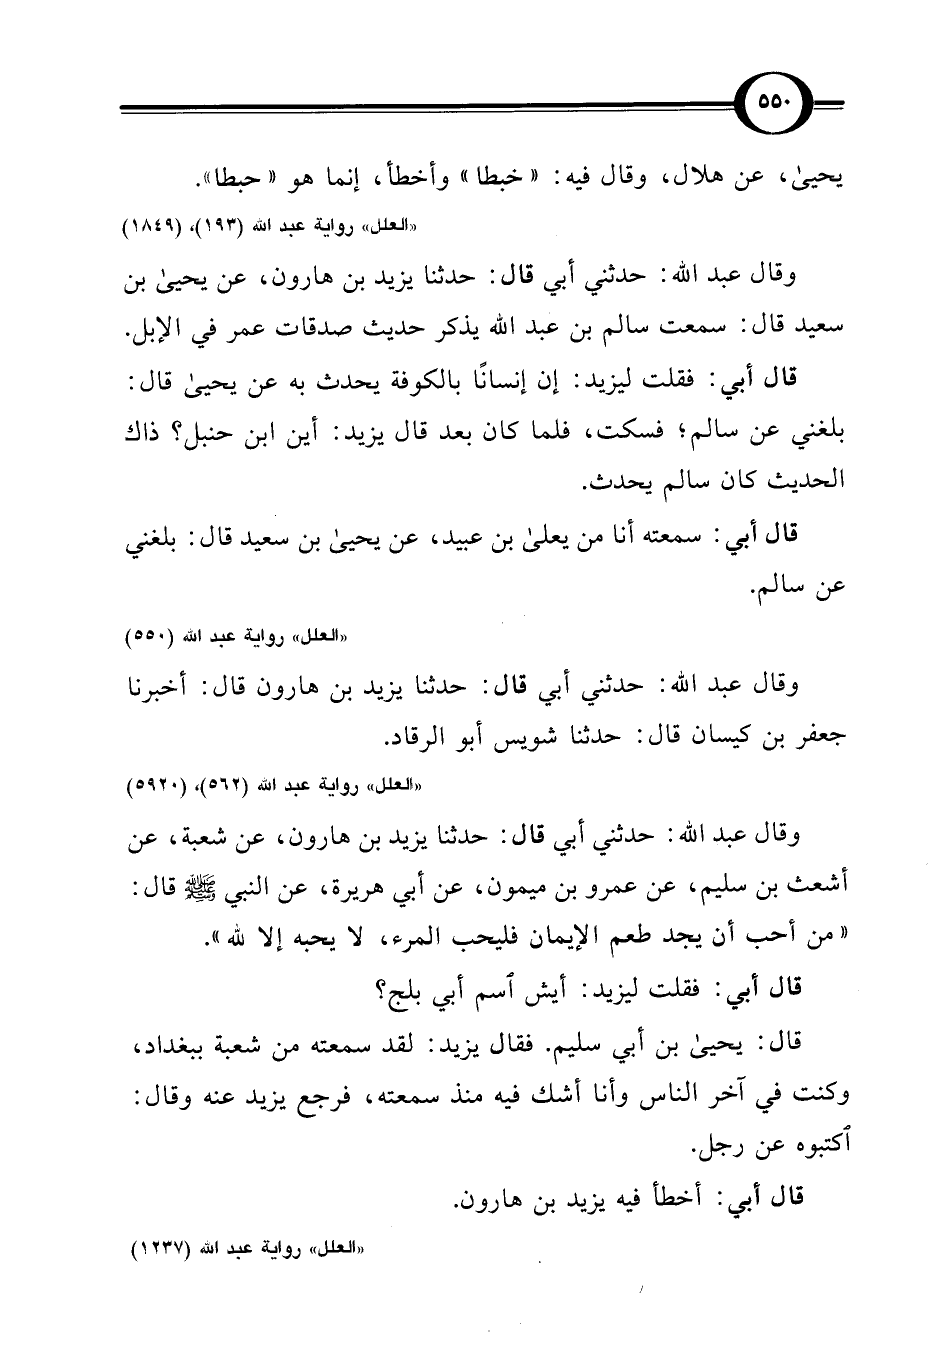 ٥٥٠
يحيىٰ، عن هلال، وقال فيه: «خبطا» وأخطأ، إنما هو «حبطا».
«العلل» رواية عبد الله (١٩٣)، (١٨٤٩)
وقال عبد الله: حدثني أبي قال: حدثنا يزيد بن هارون، عن يحيىٰ بن
سعيد قال: سمعت سالم بن عبد الله يذكر حديث صدقات عمر في الإبل.
قال أبي: فقلت ليزيد: إن إنسانًا بالكوفة يحدث به عن يحيىٰ قال:
بلغني عن سالم؛ فسكت، فلما كان بعد قال يزيد: أين ابن حنبل؟ ذاك
الحديث كان سالم يحدث.
قال أبي: سمعته أنا من يعلىٰ بن عبيد، عن يحيىٰ بن سعيد قال: بلغني
عن سالم.
«العلل» رواية عبد الله (٥٥٠)
وقال عبد الله: حدثني أبي قال: حدثنا يزيد بن هارون قال: أخبرنا
جعفر بن كيسان قال: حدثنا شويس أبو الرقاد.
«العلل» رواية عبد الله (٥٦٢)، (٥٩٢٠)
وقال عبد الله: حدثني أبي قال: حدثنا يزيد بن هارون، عن شعبة، عن
أشعث بن سليم، عن عمرو بن ميمون، عن أبي هريرة، عن النبي ﷺ قال:
«من أحب أن يجد طعم الإيمان فليحب المرء، لا يحبه إلا لله».
قال أبي: فقلت ليزيد: أيش ٱسم أبي بلج؟
قال: يحيىٰ بن أبي سليم. فقال يزيد: لقد سمعته من شعبة ببغداد،
وكنت في آخر الناس وأنا أشك فيه منذ سمعته، فرجع يزيد عنه وقال:
ٱكتبوه عن رجل.
قال أبي: أخطأ فيه يزيد بن هارون.
«العلل» رواية عبد الله (١٢٣٧)